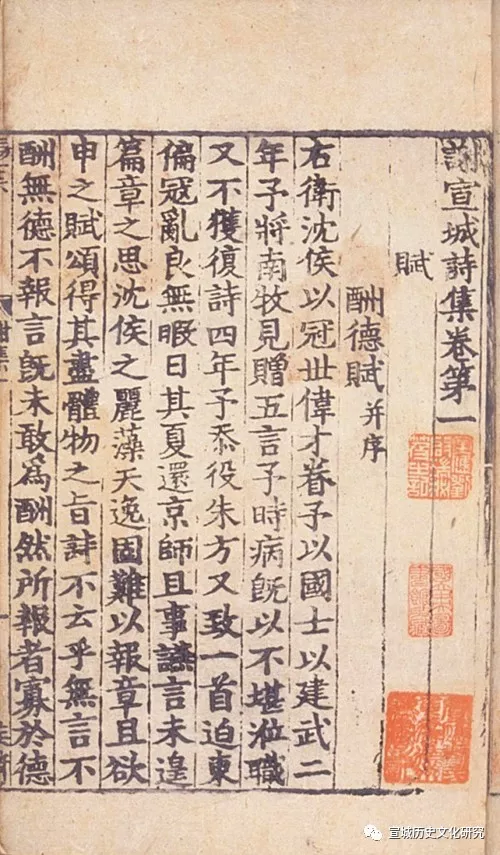 謝宣城詩集卷第一
賦
酬德賦 并序
右衛沈侯以冠世偉才眷予以國士以建武二
年予將南牧見贈五言予時病旣以不堪涖職
又不獲復詩四年予忝役朱方又致一首迫東
偏寇亂良無暇日其夏還京師且事讌言未遑
篇章之思沈侯之麗藻天逸固難以報章且欲
申之賦頌得其盡體物之旨詩不云乎無言不
酬無德不報言旣未敢爲酬然所報者寡於德
宣城历史文化研究